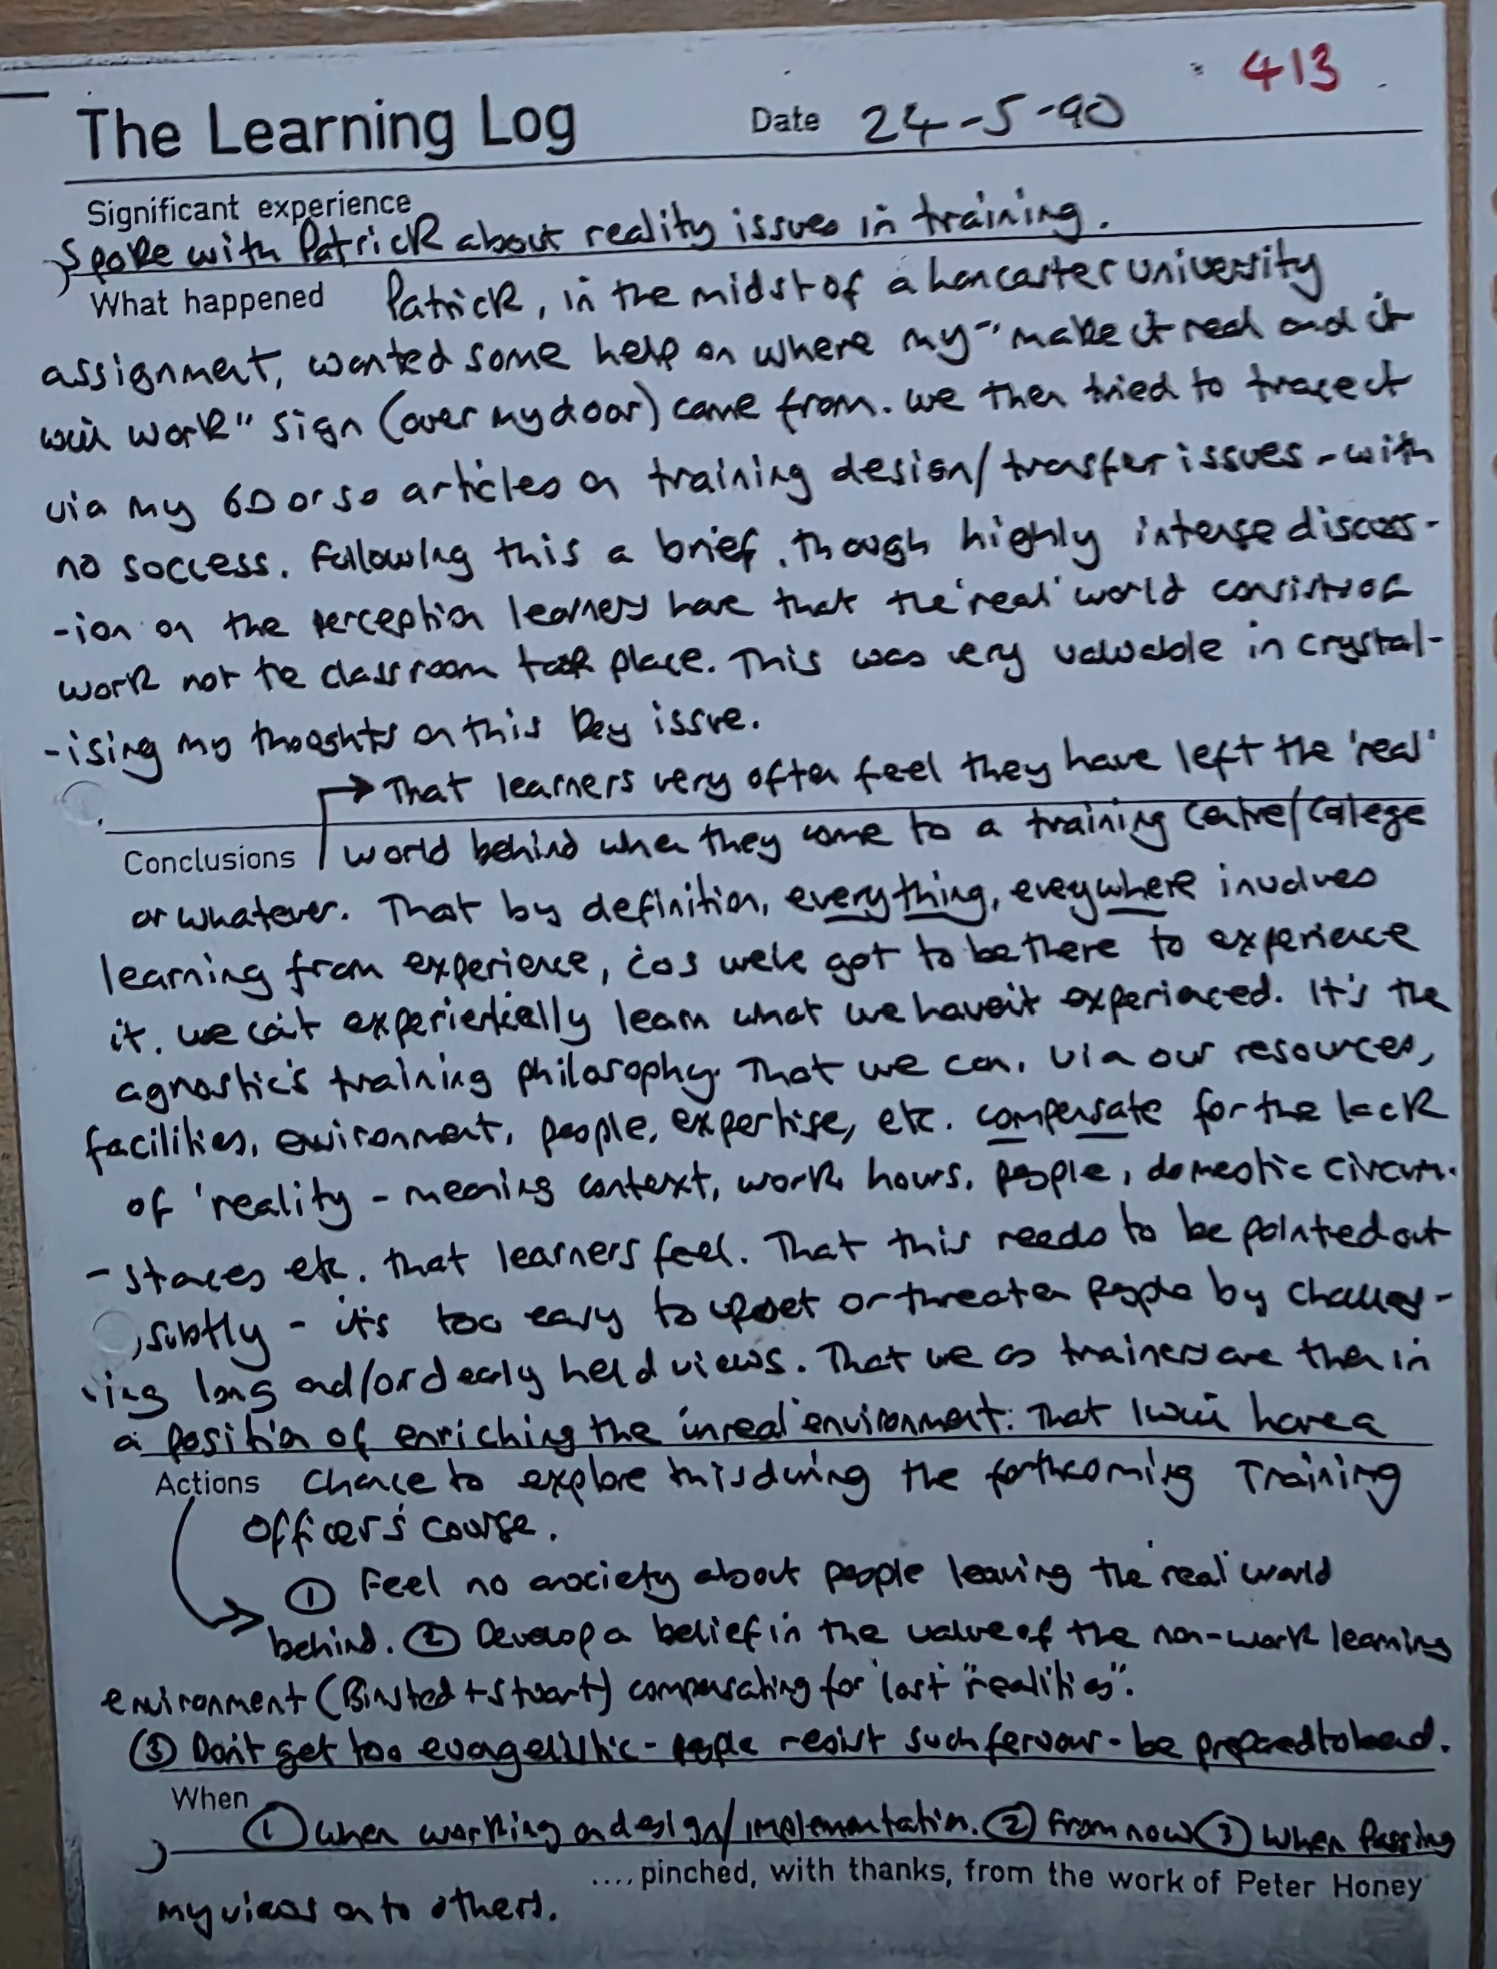 413
The Learning Log Date 24-5-90
Significant experience
Spoke with Patrick about reality issues in training.
What happened Patrick, in the midst of a Lancaster University
assignment, wanted some help on where my "make it real and it
will work" sign (over my door) came from. We then tried to trace it
via my 60 or so articles on training design/transfer issues - with
no success. Following this a brief, though highly intense discuss-
-ion on the perception learners have that the 'real' world consists of
work not the classroom took place. This was very valuable in crystal-
-ising my thoughts on this key issue.
→ That learners very often feel they have left the 'real'
Conclusions world behind when they come to a training centre/college
or whatever. That by definition, everything, everywhere involves
learning from experience, cos we've got to be there to experience
it. We can't experientially learn what we haven't experienced. It's the
agnostic's training philosophy. That we can, via our resources,
facilities, environment, people, expertise, etc. compensate for the lack
of 'reality - meaning context, work, hours, people, domestic circum-
-stances etc. that learners feel. That this needs to be pointed out
subtly - it's too easy to upset or threaten people by challeng-
-ing long and/or dearly held views. That we as trainers are then in
a position of enriching the 'unreal' environment. That I will have a
Actions chance to explore this during the forthcoming Training
Officers' course.
① Feel no anxiety about people leaving the 'real' world
behind. ② Develop a belief in the value of the non-work learning
environment (Binsted + Stuart) compensating for 'lost "realities".
③ Don't get too evangelistic - people resist such fervour - be prepared to bend.
When
① When working on design/implementation. ② From now ③ When passing
.... pinched, with thanks, from the work of Peter Honey
my views on to others.